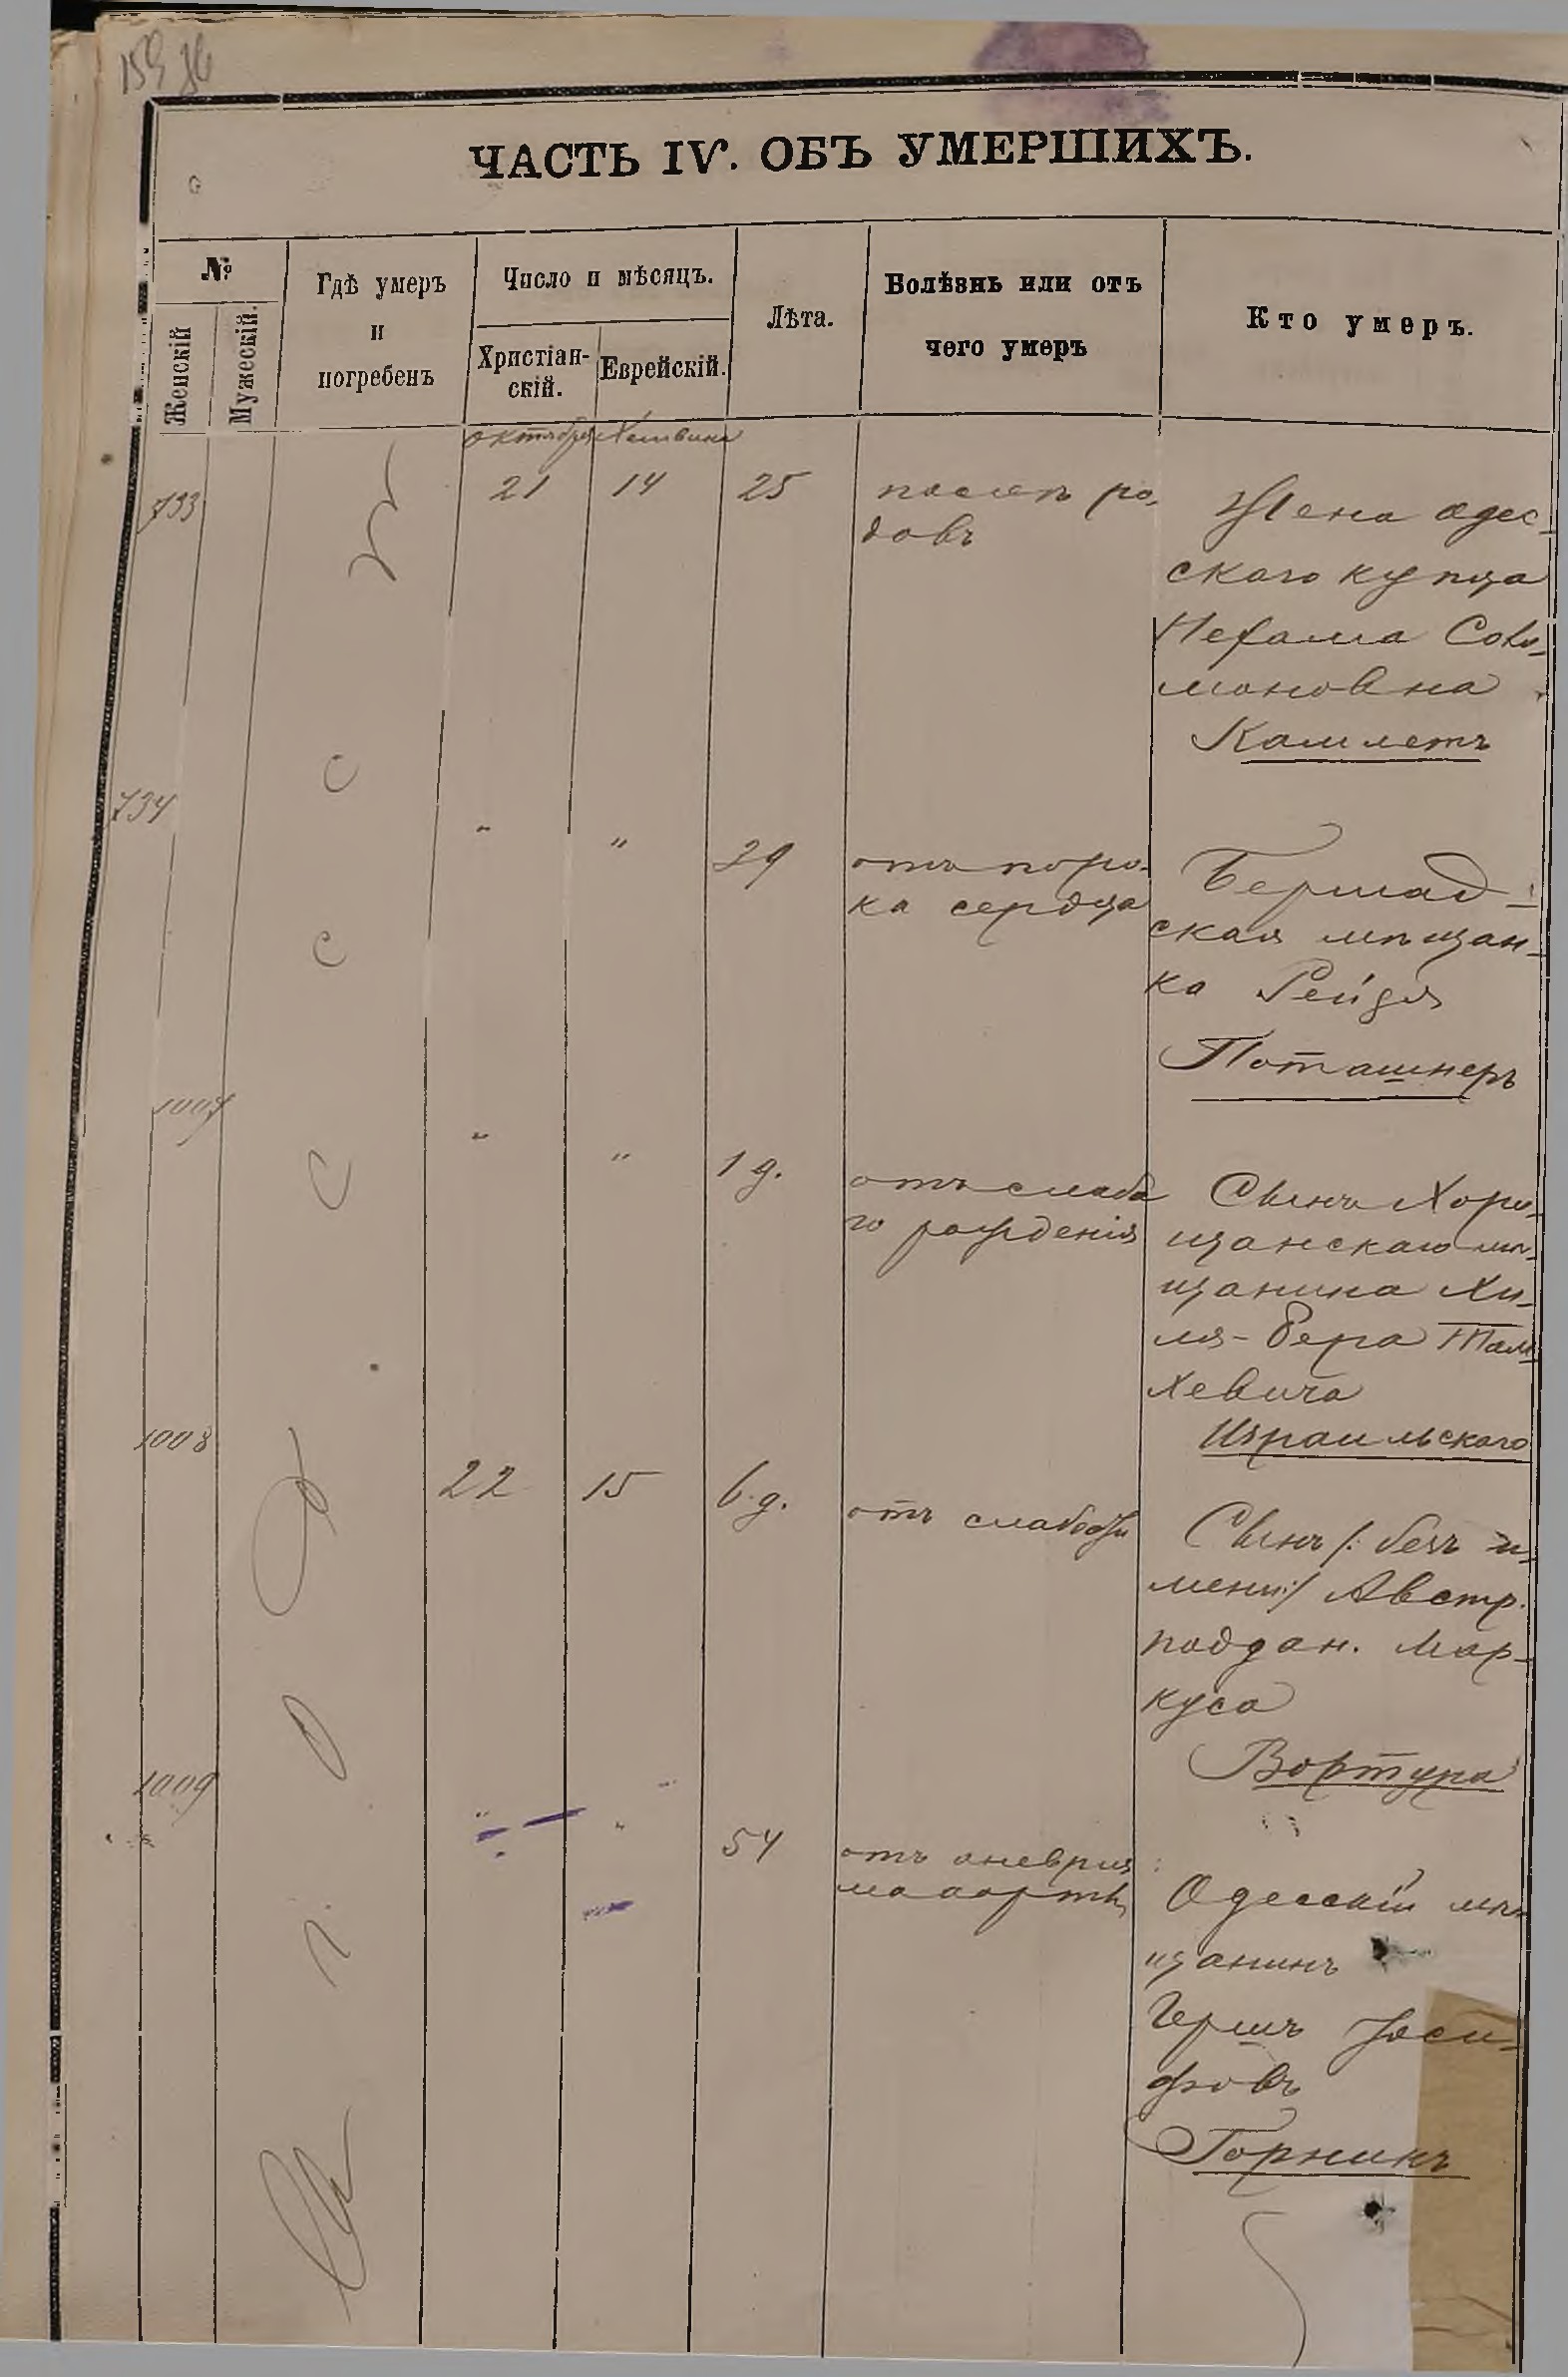 ЧАСТЬ IV. ОБЪ УМЕРШИХЪ.
№
Женскій
Мужескій.
Гдѣ умеръ
и
погребенъ
Число и мѣсяцъ.
Христіан-
скій.
Еврейскій.
Лѣта.
Болѣзнь или отъ
чего умеръ
Кто умеръ.
октября Хешвина
733
21 14 25
послѣ ро-
довъ
Жена одес-
скаго купца
Нехама Соло-
моновна
Камлетъ
734
" " 29
отъ поро-
ка сердца
Бершад-
ская мѣщан-
ка Рейзя
Поташнеръ
1007
" " 1 д.
отъ слаба
го рожденія
Сынъ Хоро-
щанскаго мѣ-
щанина Хи-
ля-Бера
хевича
Израильскаго
1008
22 15 6 д.
отъ слабости
Сынъ /: безъ и-
мени :/ Австр.
поддан. Мар-
куса
Вортура
1009
" " 54
отъ аневриз
ма аорты
Одесскій мѣ-
щанинъ
Гершъ Іоси-
фовъ
Горникъ
Одесса